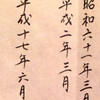 昭和六十一年三月
平成二年三月
平成十七年六月